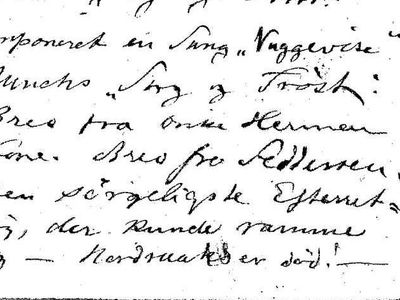 mponeret en Sang „Vuggevise“
Munchs „Sorg og Trøst“.
Brev fra Onkel Herman
Tone. Brev fra Feddersen.
en sörgeligste Efterret=
g, der kunde ramme
g — Nordraak er död! —